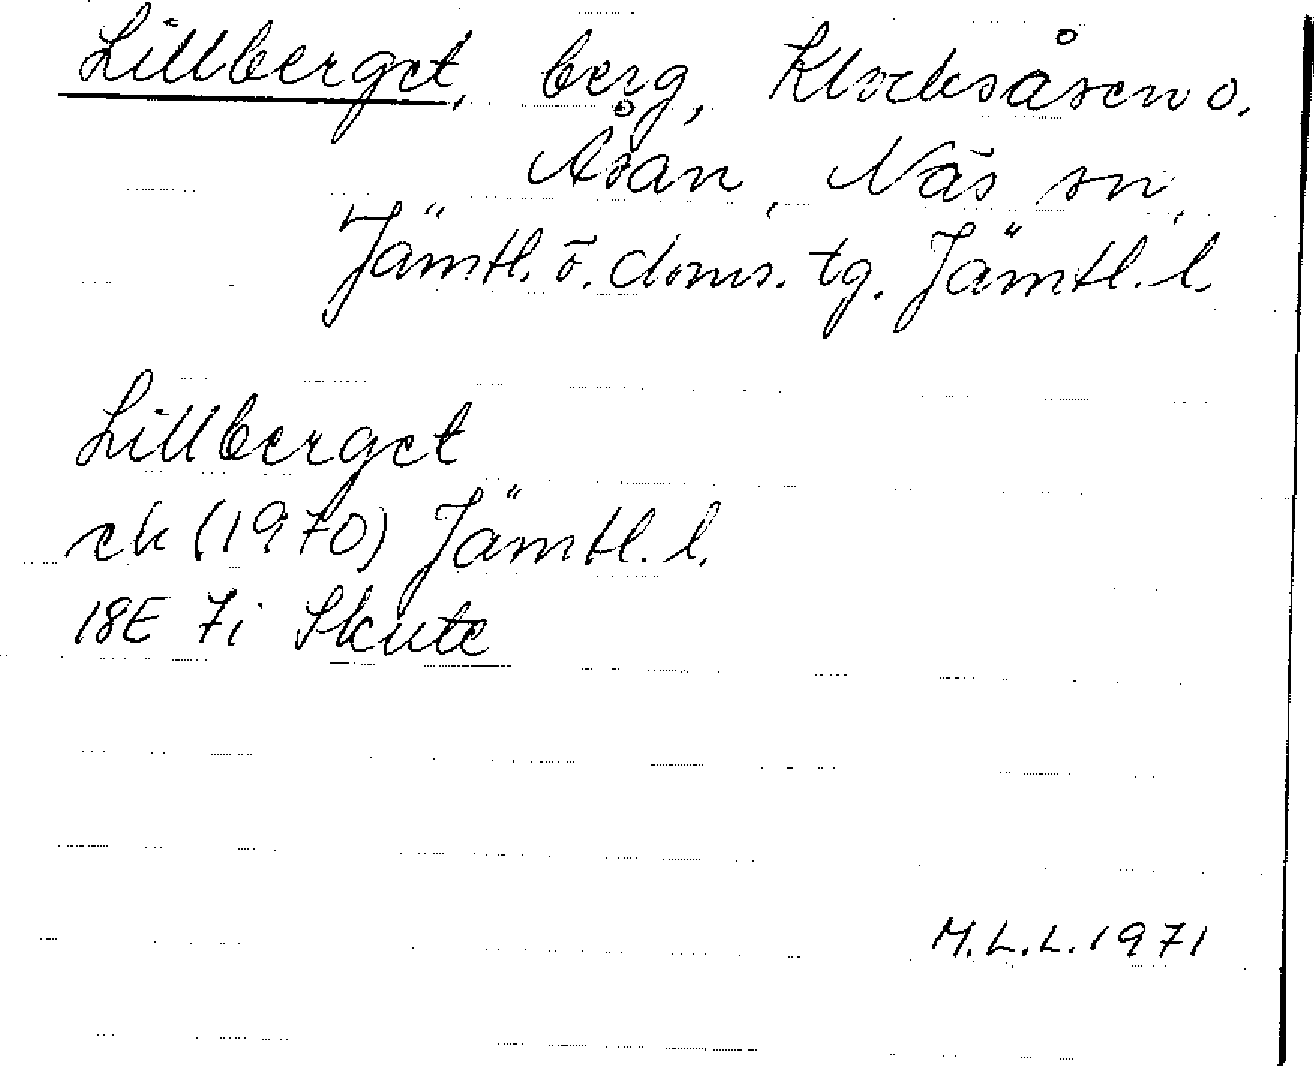 Lillberget, berg, Klocksåsen o.
Åsan, Näs sn,
Jämtl. ö. doms. tg. Jämtl. l.
Lillberget
ek (1970) Jämtl. l.
18E 7i Skute
M.L.L. 1971